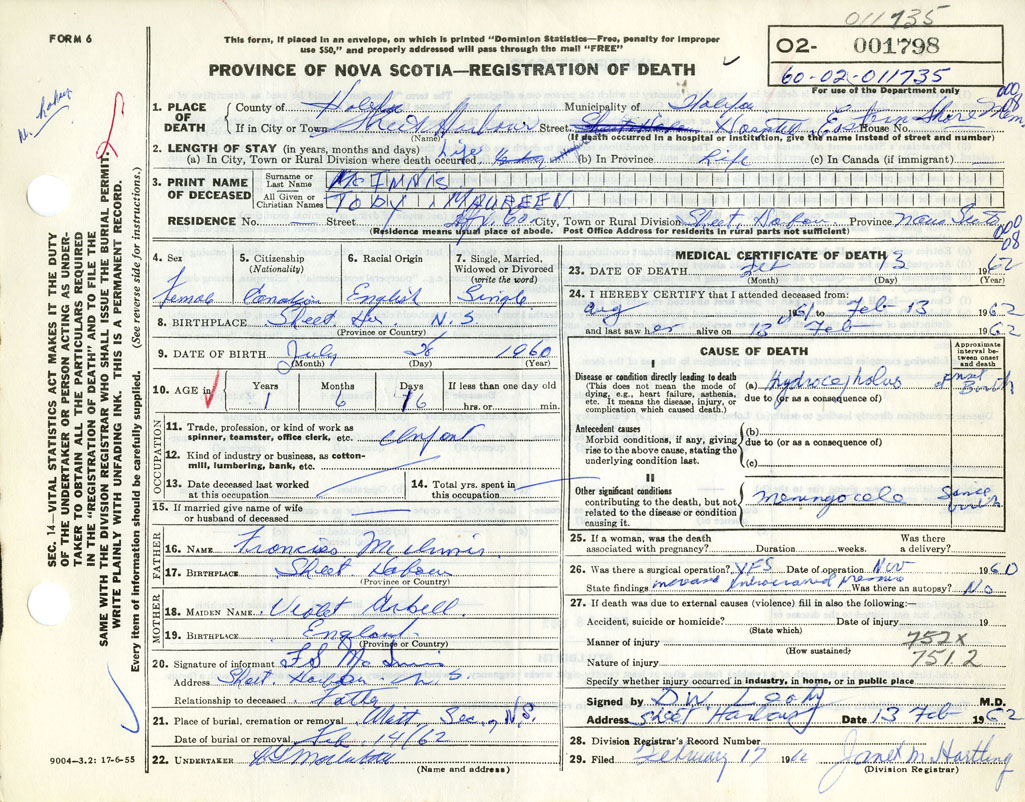 011735
FORM 6
This form, if placed in an envelope, on which is printed "Dominion Statistics—Free, penalty for improper
use $50," and properly addressed will pass through the mail "FREE"
PROVINCE OF NOVA SCOTIA—REGISTRATION OF DEATH
02- 001798
60-02-011735
For use of the Department only
1. PLACE OF DEATH
County of Halifax Municipality of Halifax
If in City or Town Sheet Harbour Street Hospital Eastern Shore Mem House No.
(Name) (If death occurred in a hospital or institution, give the name instead of street and number)
2. LENGTH OF STAY (in years, months and days)
(a) In City, Town or Rural Division where death occurred Life (b) In Province Life (c) In Canada (if immigrant)
3. PRINT NAME OF DECEASED
Surname or Last Name McINNIS
All Given or Christian Names TOBY MAUREEN
RESIDENCE No. Street City, Town or Rural Division Sheet Harbour Province Nova Scotia
(Residence means usual place of abode. Post Office Address for residents in rural parts not sufficient)
000
08
4. Sex Female
5. Citizenship (Nationality) Canadian
6. Racial Origin English
7. Single, Married, Widowed or Divorced (write the word) Single
8. BIRTHPLACE Sheet Hr. N.S.
(Province or Country)
9. DATE OF BIRTH July 28 1960
(Month) (Day) (Year)
10. AGE in Years 1 Months 6 Days 16 If less than one day old hrs. or min.
OCCUPATION
11. Trade, profession, or kind of work as spinner, teamster, office clerk, etc. Infant
12. Kind of industry or business, as cotton-mill, lumbering, bank, etc.
13. Date deceased last worked at this occupation
14. Total yrs. spent in this occupation
15. If married give name of wife or husband of deceased
FATHER
16. NAME Francies McInnis
17. BIRTHPLACE Sheet Harbour
(Province or Country)
MOTHER
18. MAIDEN NAME Violet
19. BIRTHPLACE England
(Province or Country)
20. Signature of informant F S McInnis
Address Sheet Harbour N.S.
Relationship to deceased Father
21. Place of burial, cremation or removal Watt Sec, N.S.
Date of burial or removal Feb 14/62
22. UNDERTAKER
(Name and address)
MEDICAL CERTIFICATE OF DEATH
23. DATE OF DEATH Feb 13 1962
(Month) (Day) (Year)
24. I HEREBY CERTIFY that I attended deceased from:
Aug 1961 to Feb 13 1962
and last saw her alive on 13 Feb 1962
CAUSE OF DEATH
Approximate interval between onset and death
I
Disease or condition directly leading to death
(This does not mean the mode of dying, e.g., heart failure, asthenia, etc. It means the disease, injury, or complication which caused death.)
(a) Hydrocephalus Birth
due to (or as a consequence of)
Antecedent causes
Morbid conditions, if any, giving rise to the above cause, stating the underlying condition last.
(b)
due to (or as a consequence of)
(c)
II
Other significant conditions
contributing to the death, but not related to the disease or condition causing it.
Meningocele Since birth
25. If a woman, was the death associated with pregnancy? Duration weeks. Was there a delivery?
26. Was there a surgical operation? YES Date of operation Nov 1960
State findings intracranial pressure Was there an autopsy? No
27. If death was due to external causes (violence) fill in also the following:—
Accident, suicide or homicide? Date of injury 19
(State which)
Manner of injury 752X
(How sustained)
Nature of injury 751.2
Specify whether injury occurred in industry, in home, or in public place
Signed by M.D.
Address Sheet Harbour Date 13 Feb 1962
28. Division Registrar's Record Number
29. Filed February 17 19 Janet M. Hartling
(Division Registrar)
SEC. 14—VITAL STATISTICS ACT MAKES IT THE DUTY
OF THE UNDERTAKER OR PERSON ACTING AS UNDER-
TAKER TO OBTAIN ALL THE PARTICULARS REQUIRED
IN THE "REGISTRATION OF DEATH" AND TO FILE THE
SAME WITH THE DIVISION REGISTRAR WHO SHALL ISSUE THE BURIAL PERMIT.
WRITE PLAINLY WITH UNFADING INK. THIS IS A PERMANENT RECORD.
Every item of information should be carefully supplied. (See reverse side for instructions.)
9004—3.2: 17-6-55